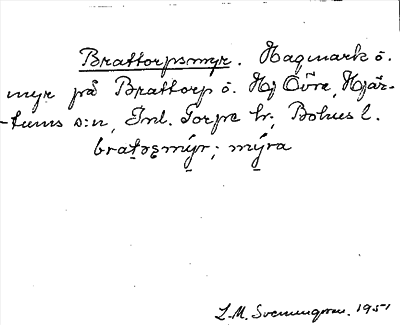 Brattorpsmyr. Hagmark o.
myr på Brattorp o. Hj Övre, Hjär-
-tums s:n, Inl. Torpe hr, Bohus l.
bratǝʂmýr; mýra
L.M. Svenungsson. 1951